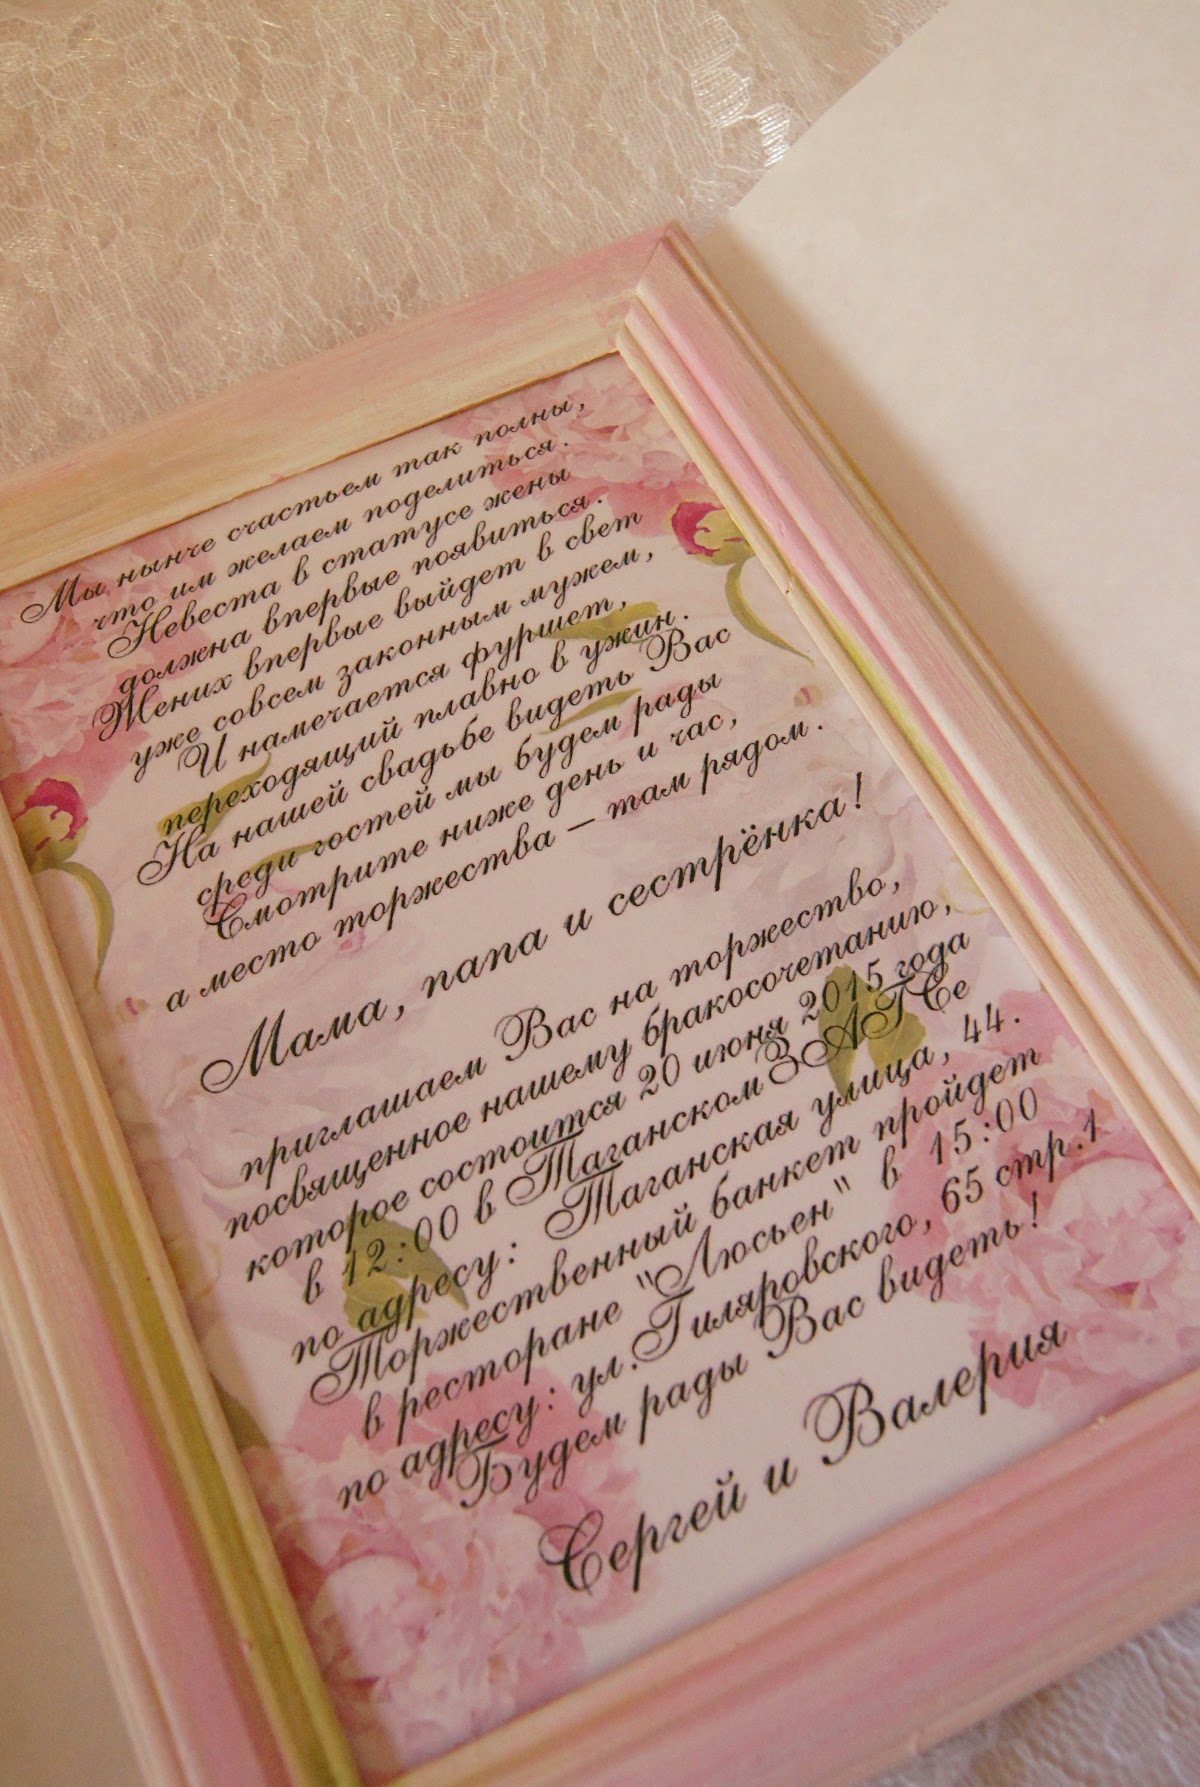 Мы нынче счастьем так полны,
что им желаем поделиться.
Невеста в статусе жены
должна впервые появиться.
Жених впервые выйдет в свет
уже совсем законным мужем,
И намечается фуршет,
переходящий плавно в ужин.
На нашей свадьбе видеть Вас
среди гостей мы будем рады
Смотрите ниже день и час,
а место торжества – там рядом.
Мама, папа и сестрёнка!
приглашаем Вас на торжество,
посвященное нашему бракосочетанию,
которое состоится 20 июня 2015 года
в 12:00 в Таганском ЗАГСе
по адресу: Таганская улица, 44.
Торжественный банкет пройдет
в ресторане "Люсьен" в 15:00
по адресу: ул.Гиляровского, 65 стр.1
Будем рады Вас видеть!
Сергей и Валерия